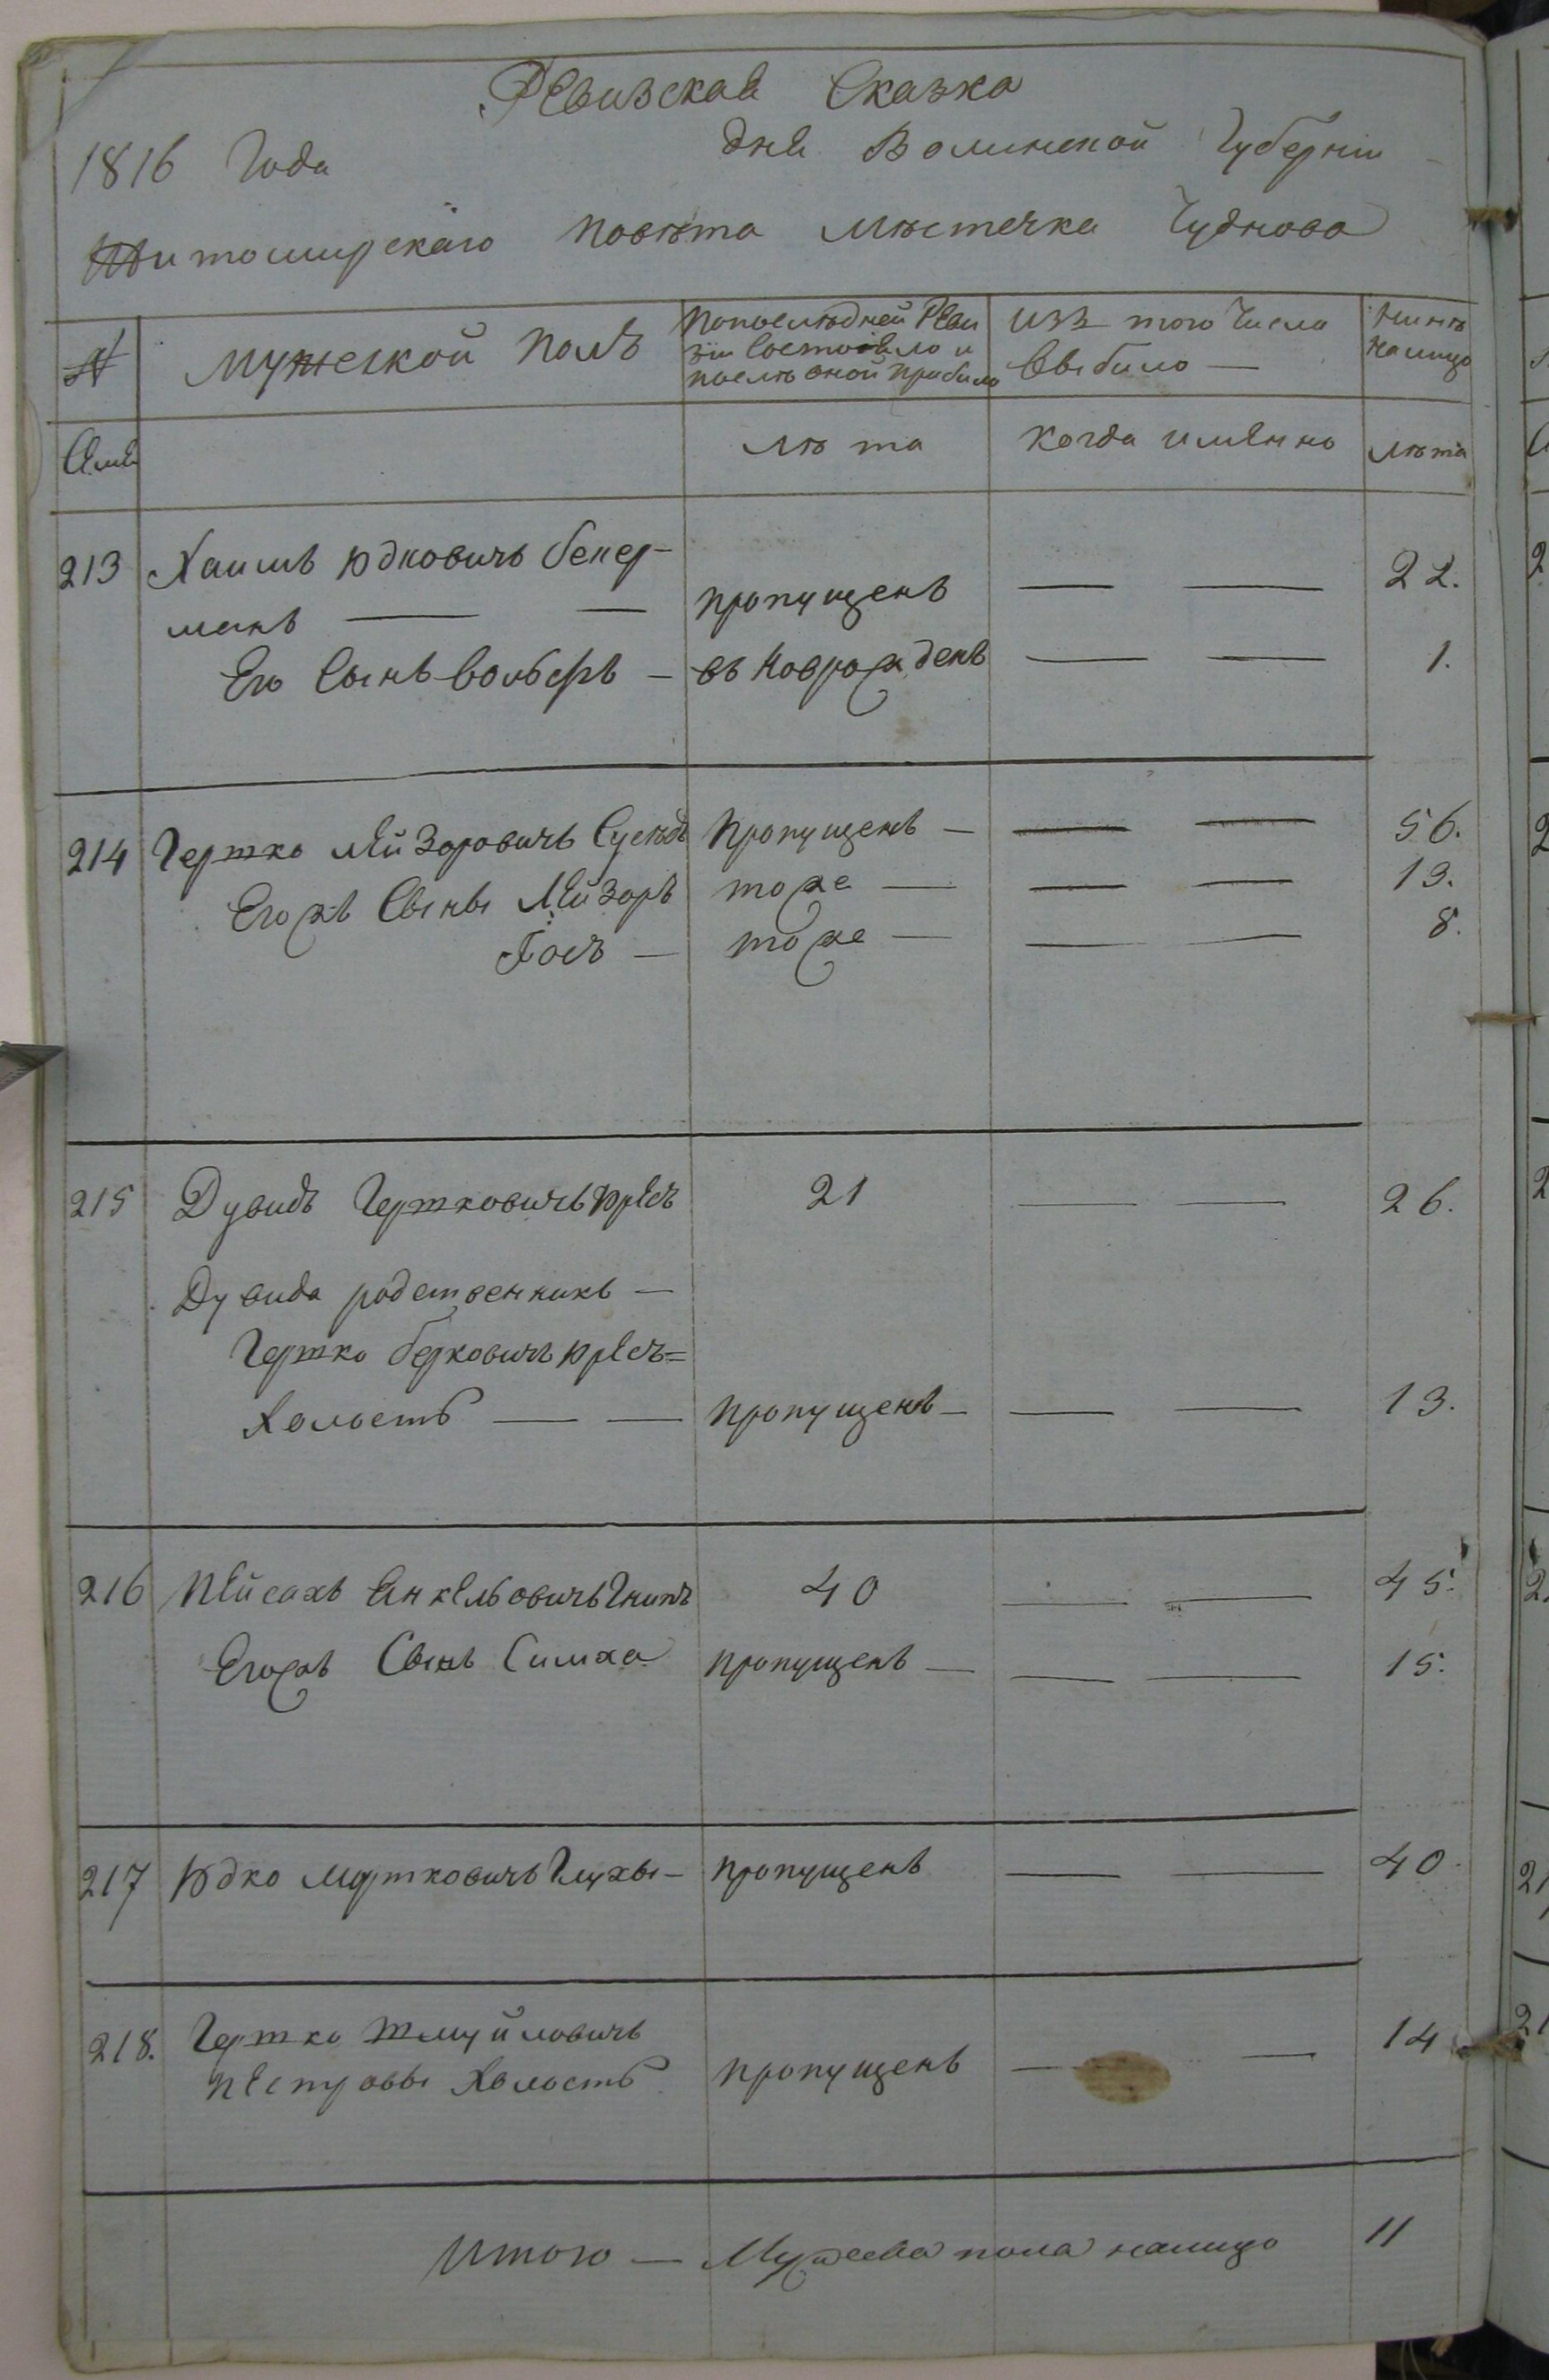 Ревизская Сказка
1816 Года дня Волинской Губернiи
Житомирскаго повѣта мѣстечка Чуднова
№ Мужеской Полъ Попослѣдней Реви Изъ того Числа Нинѣ
зiи Состояло и выбило — налицо
послѣ оной прибило
Семи лѣта когда имянно лѣта
213 Хаимъ Юдковичъ бекер-
манъ — — пропущенъ — — 22.
Его Сынъ вольфъ — въ Новрожденъ — — 1.
214 Гершко Мейзоровичъ Сусѣдъ Пропущенъ — — — 56.
Егожъ Сыны Мейзоръ тоже — — — 13.
Гось — тоже — — — 8.
215 Дувидъ Гершковичъ Юресъ 21 — — 26.
Дувида родственникъ —
Гершко берковичъ Юресъ=
Холостъ — — пропущенъ — — — 13.
216 Пейсахъ Янкельовичъ 40 — — 45.
Егожъ Сынъ Симха пропущенъ — — — 15.
217 Юдко Мортковичъ Глухы — пропущенъ — — 40.
218. Гершко Шмуйловичъ
Пеструовы Холостъ пропущенъ — — 14
Итого — Мужеска пола налицо 11